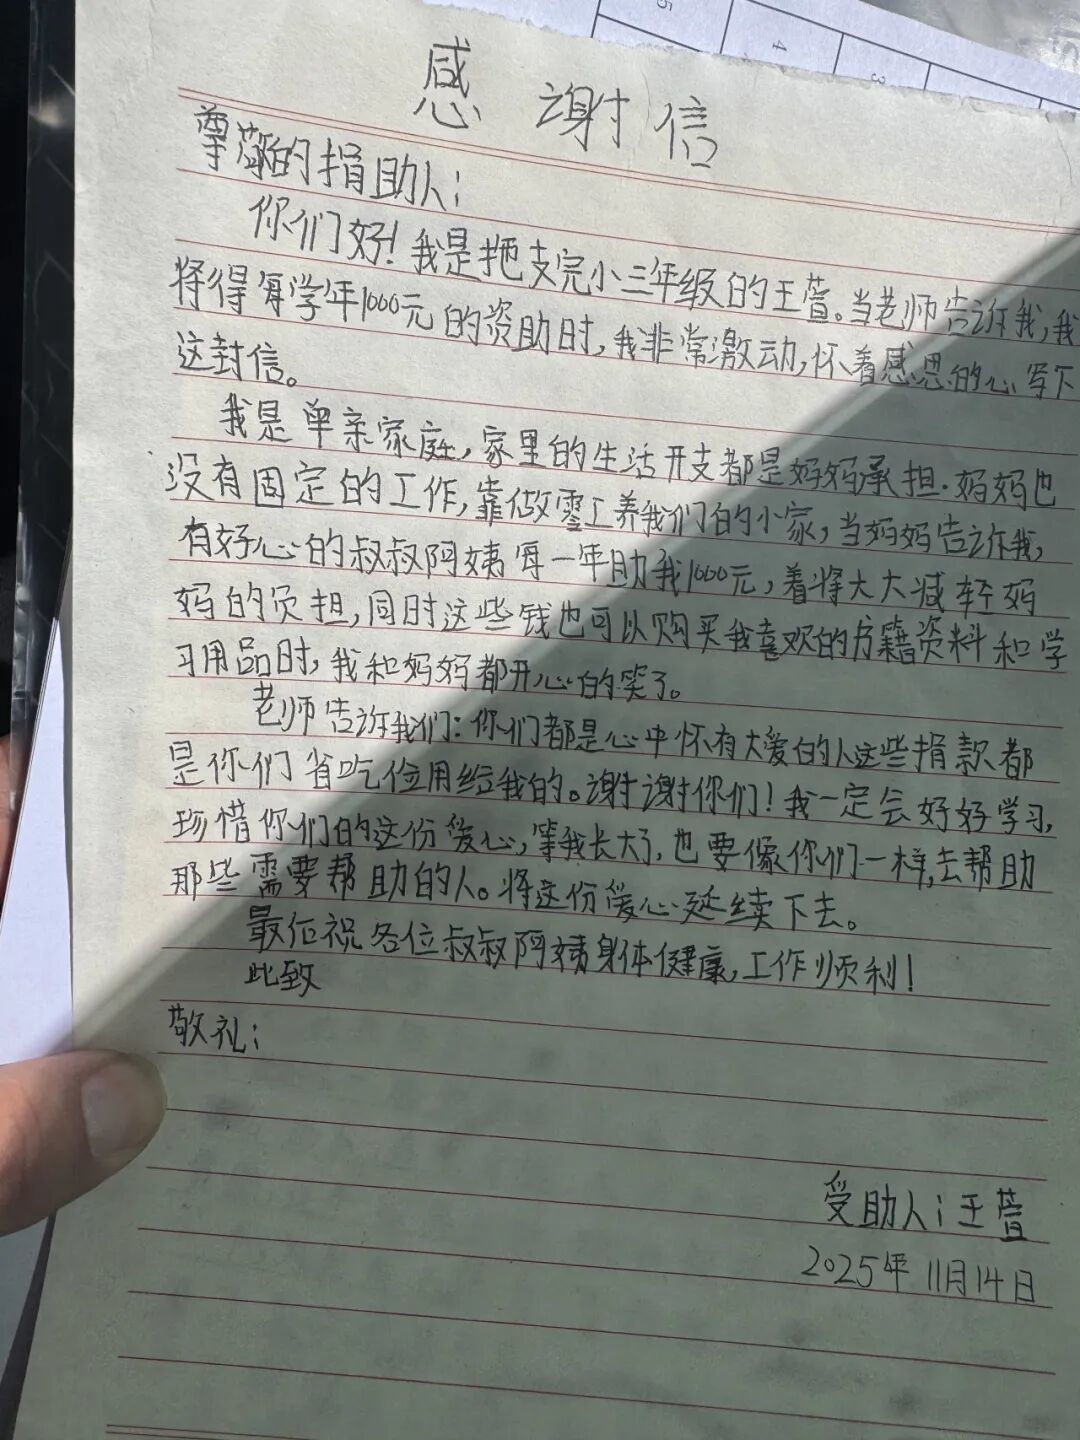 感谢信
尊敬的捐助人:
你们好!我是拖支完小三年级的王萱。当老师告诉我,我
将得每学年1000元的资助时,我非常激动,怀着感恩的心写下
这封信。
我是单亲家庭,家里的生活开支都是妈妈承担.妈妈也
没有固定的工作,靠做零工养我们的小家,当妈妈告诉我,
有好心的叔叔阿姨每一年助我1000元,着将大大减轻妈
妈的负担,同时这些钱也可以购买我喜欢的书籍资料和学
习用品时,我和妈妈都开心的笑了。
老师告诉我们:你们都是心中怀有大爱的人这些捐款都
是你们省吃俭用给我的。谢谢你们!我一定会好好学习,
珍惜你们的这份爱心,等我长大了,也要像你们一样,去帮助
那些需要帮助的人。将这份爱心延续下去。
最后祝各位叔叔阿姨身体健康,工作顺利!
此致
敬礼;
受助人:王萱
2025年11月14日
5
4
3